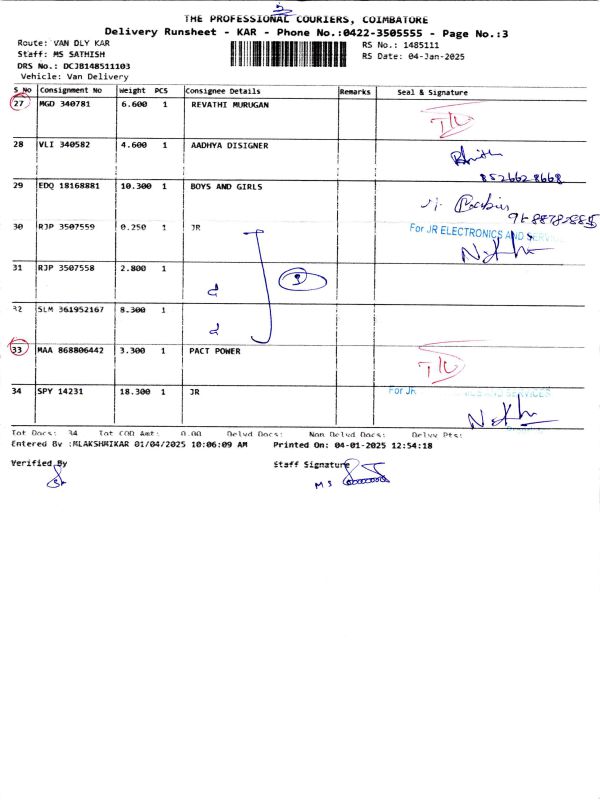 THE PROFESSIONAL COURIERS, COIMBATORE
Delivery Runsheet - KAR - Phone No.:0422-3505555 - Page No.:3
Route: VAN DLY KAR
RS No.: 1485111
Staff: MS SATHISH
RS Date: 04-Jan-2025
DRS No.: DCJB148511103
Vehicle: Van Delivery
S No Consignment No Weight PCS Consignee Details Remarks Seal & Signature
27 MGD 340781 6.600 1 REVATHI MURUGAN
28 VLI 340582 4.600 1 AADHYA DISIGNER
8526628668
29 EDQ 18168881 10.300 1 BOYS AND GIRLS
30 RJP 3507559 0.250 1 JR
For JR ELECTRONICS AND SERVICES
31 RJP 3507558 2.800 1
32 SLM 361952167 8.300 1
33 MAA 868806442 3.300 1 PACT POWER
34 SPY 14231 18.300 1 JR
For JR
Tot Docs: 34 Tot COD Amt: 0.00 Delvd Docs: Non Delvd Docs: Delvy Pts:
Entered By :MLAKSHMIKAR 01/04/2025 10:06:09 AM Printed On: 04-01-2025 12:54:18
Verified By Staff Signature
MS